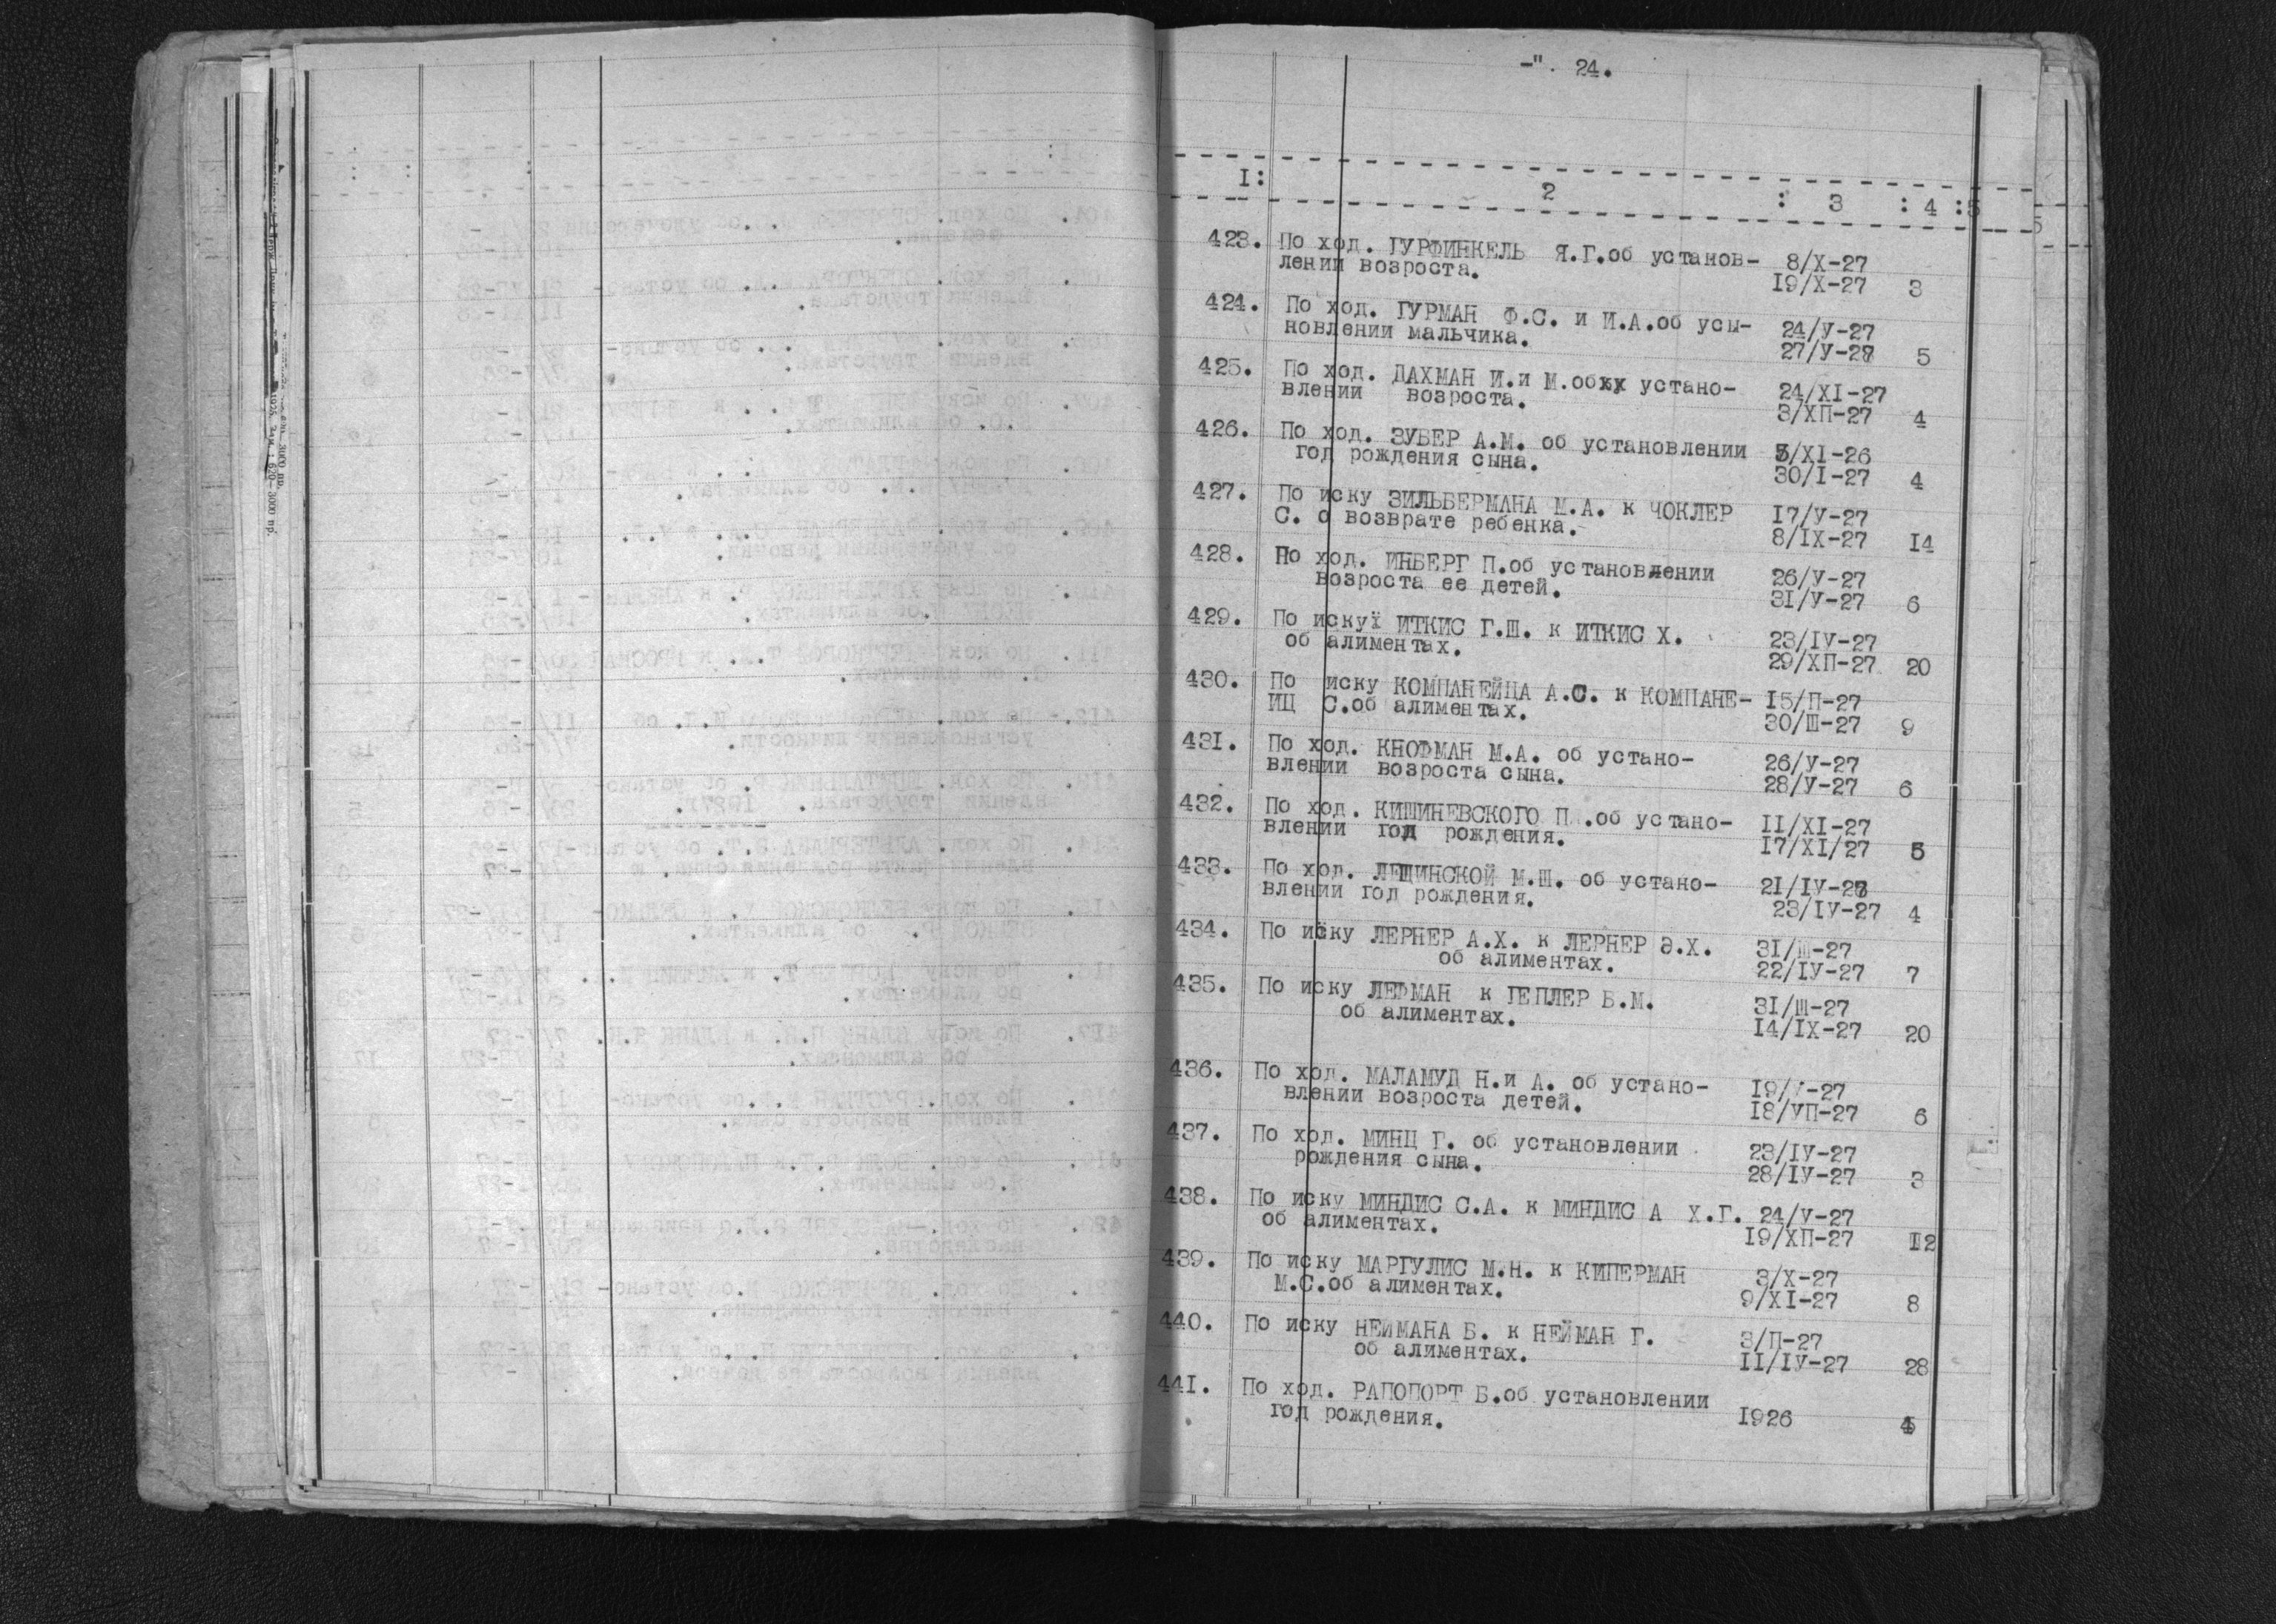 -". 24.
I: 2 : 3 : 4 :5
423. По ход. ГУРФИНКЕЛЬ Я.Г.об установ- 8/X-27
лении возроста. I9/X-27 3
424. По ход. ГУРМАН Ф.С. и И.А.об усы- 24/У-27
новлении мальчика. 27/У-27 5
425. По ход. ДАХМАН И.и М.обxx устано- 24/XI-27
влении возроста. 3/ХП-27 4
426. По ход. ЗУБЕР А.М. об установлении 5/XI-26
год рождения сына. 30/I-27 4
427. По иску ЗИЛЬБЕРМАНА М.А. к ЧОКЛЕР I7/У-27
С. о возврате ребенка. 8/IX-27 I4
428. По ход. ИНБЕРГ П.об установлении 26/У-27
возроста ее детей. 3I/У-27 6
429. По иску ИТКИС Г.Ш. к ИТКИС Х. 23/IУ-27
об алиментах. 29/ХП-27 20
430. По иску КОМПАНЕЙЦА А.С. к КОМПАНЕ- I5/П-27
ИЦ С.об алиментах. 30/Ш-27 9
43I. По ход. КНОФМАН М.А. об устано- 26/У-27
влении возроста сына. 28/У-27 6
432. По ход. КИШИНЕВСКОГО П .об устано- II/XI-27
влении год рождения. I7/XI/27 5
433. По ход. ЛЕЩИНСКОЙ М.Ш. об устано- 2I/IУ-27
влении год рождения. 23/IУ-27 4
434. По иску ЛЕРНЕР А.Х. к ЛЕРНЕР Э.Х. 3I/Ш-27
об алиментах. 22/IУ-27 7
435. По иску ЛЕРМАН к ГЕПЛЕР Б.М. 3I/Ш-27
об алиментах. I4/IX-27 20
436. По ход. МАЛАМУД Н.и А. об устано- I9/У-27
влении возроста детей. I8/УП-27 6
437. По ход. МИНЦ Г. об установлении 23/IУ-27
рождения сына. 28/IУ-27 3
438. По иску МИНДИС С.А. к МИНДИС А Х.Г. 24/У-27
об алиментах. I9/ХП-27 I2
439. По иску МАРГУЛИС М.Н. к КИПЕРМАН 3/X-27
М.С.об алиментах. 9/XI-27 8
440. По иску НЕЙМАНА Б. к НЕЙМАН Г. 3/П-27
об алиментах. II/IУ-27 28
44I. По ход. РАПОПОРТ Б.об установлении
год рождения. I926 4